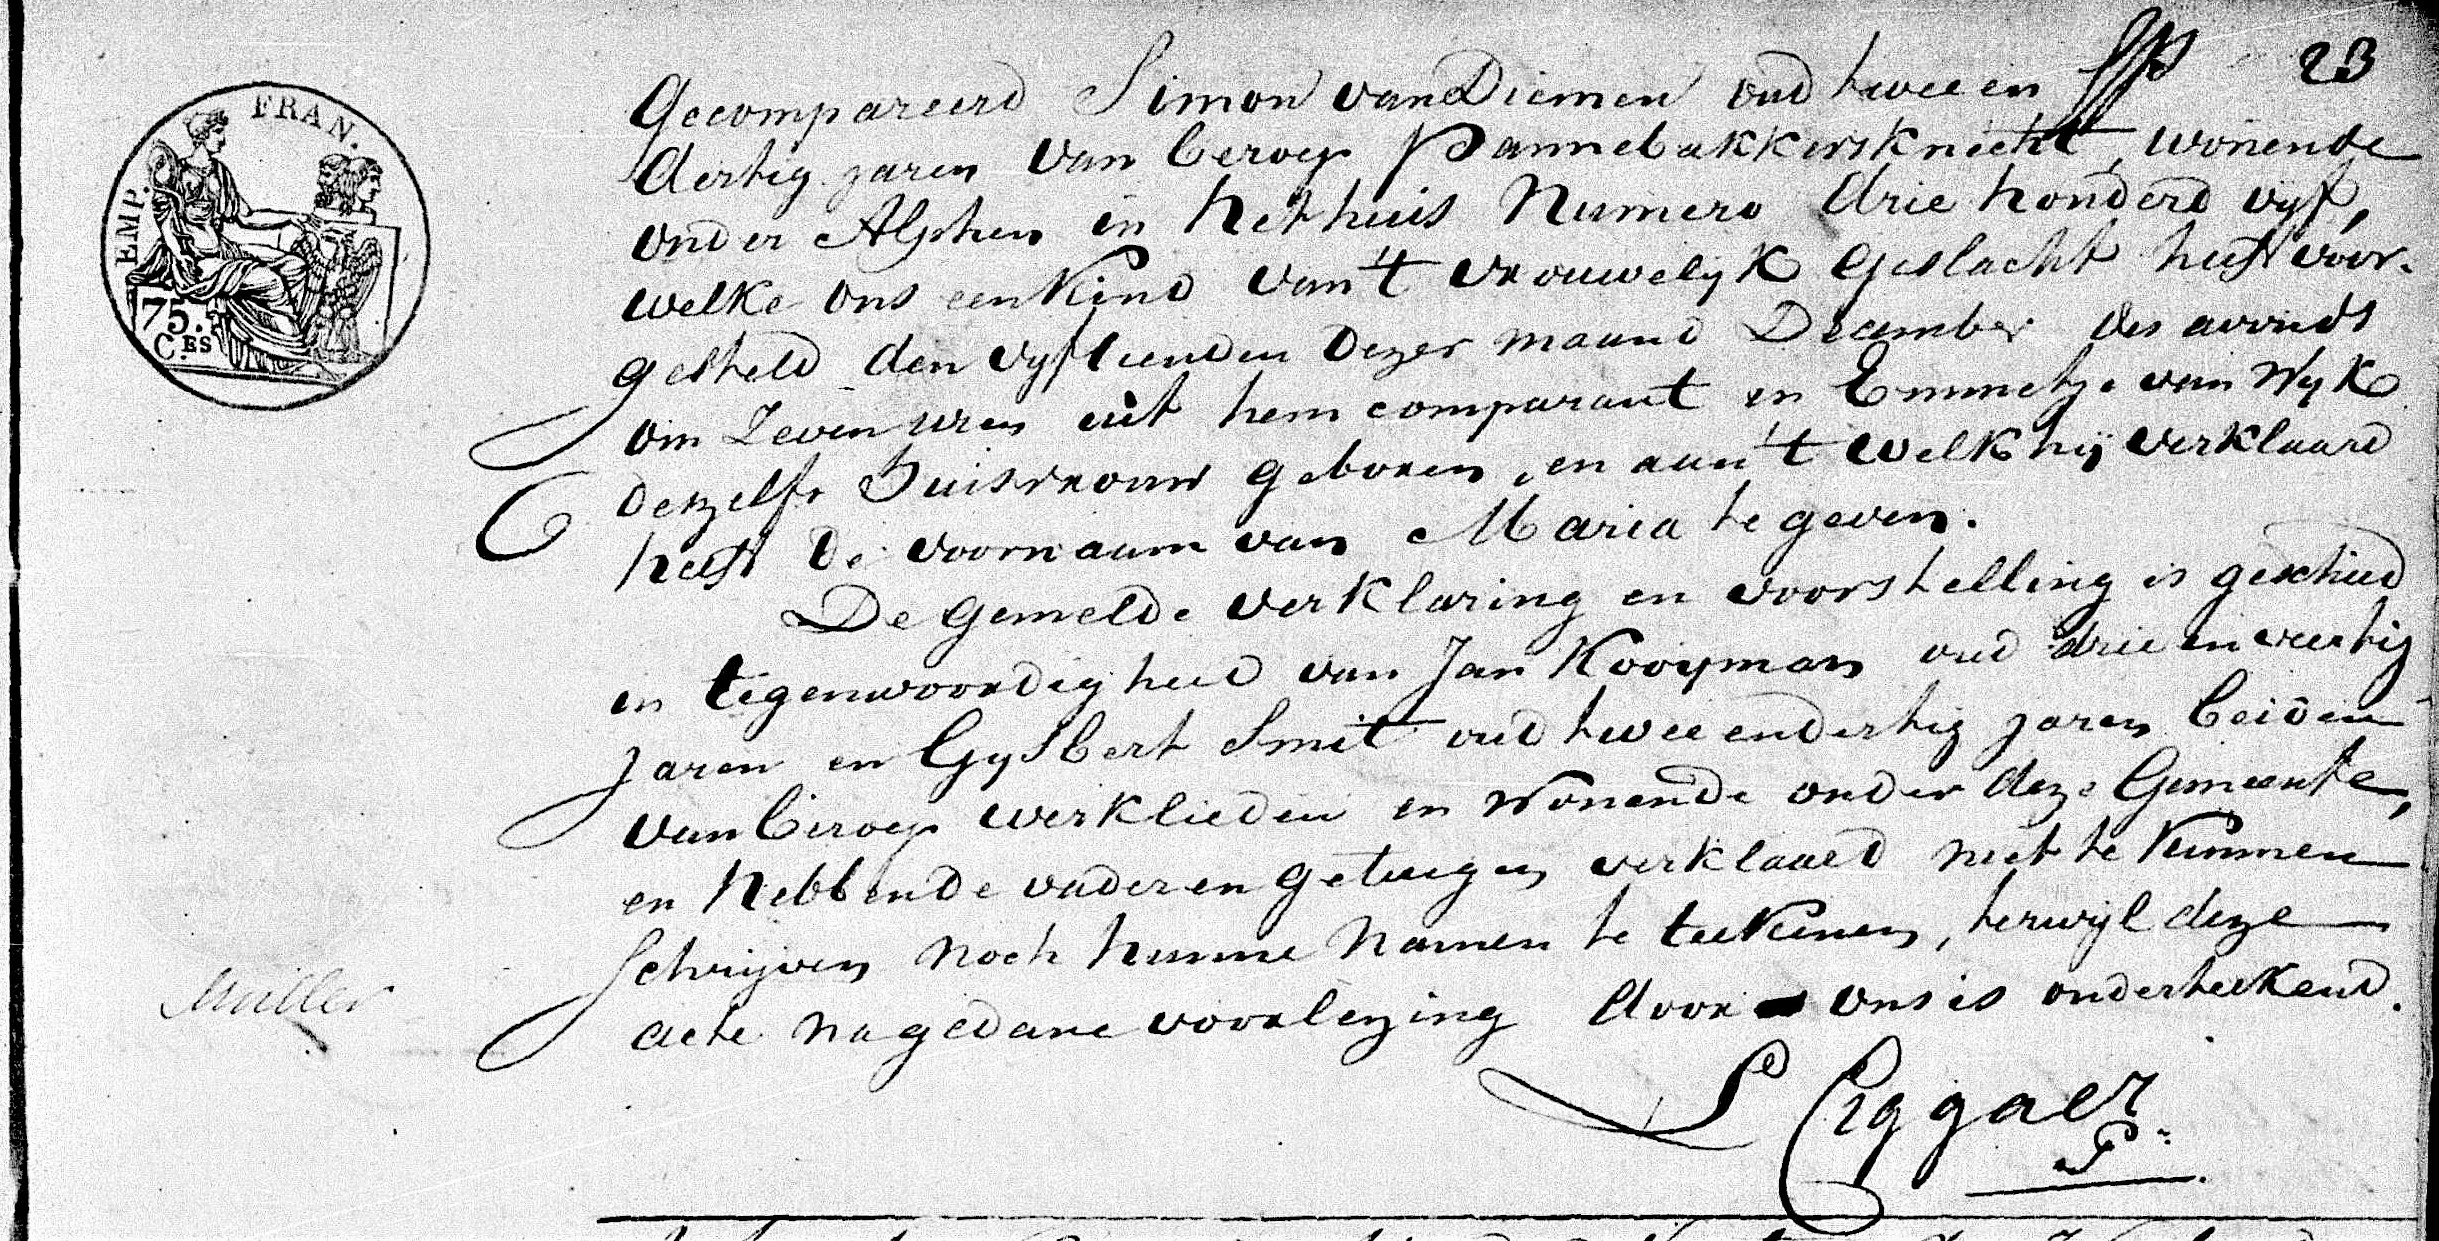 23
Gecompareerd Simon van Diemen oud twee en
dertig jaren van beroep Pannebakkersknecht, wonende
onder Alphen in het huis Numero drie honderd vyf,
welke ons een Kind van 't vrouwelyk geslacht heeft voor-
gesteld den vyftienden dezer maand December des avonds
om Zeven uren uit hem comparant en Emmetje van Wyk
deszelfs Huisvrouw geboren, en aan 't welk hij verklaard
heeft de voornaam van Maria te geven.
De gemelde verklaring en voorstelling is geschied
in tegenwoordigheid van Jan Kooyman oud drie en veertig
jaren en Gysbert Smit oud twee en dertig jaren beiden
van beroep werklieden en wonende onder deze Gemeente,
en hebbende vader en getuigen verklaard niet te kunnen
schrijven noch hunne Namen te teekenen, terwijl deze
acte na gedane voorlezing door ons is onderteekend.
L Ciggaer
EMP. FRAN.
75.
C.ES
Muller